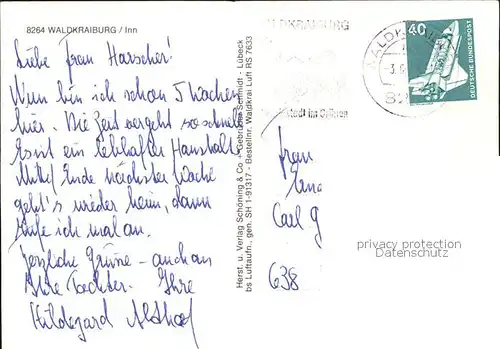 8264 WALDKRAIBURG / Inn
Liebe Frau Harscher!
Nun bin ich schon 5 Wochen
hier. Die Zeit vergeht so schnell
Es ist ein lebhafter Haushalt.
Mitte/Ende nächster Woche
geht's wieder heim, dann
rufe ich mal an.
Herzliche Grüße - auch an
Ihre Tochter. Ihre
Hildegard
Herst. u. Verlag Schöning & Co + Gebrüder Schmidt · Lübeck
bs Luftaufn., gen. SH 1-91317 - Bestellnr. Waldkrai Luft RS 7633
WALDKRAIBURG
Stadt im Grünen
40
DEUTSCHE BUNDESPOST
Frau
Carl G
638
privacy protection
Datenschutz